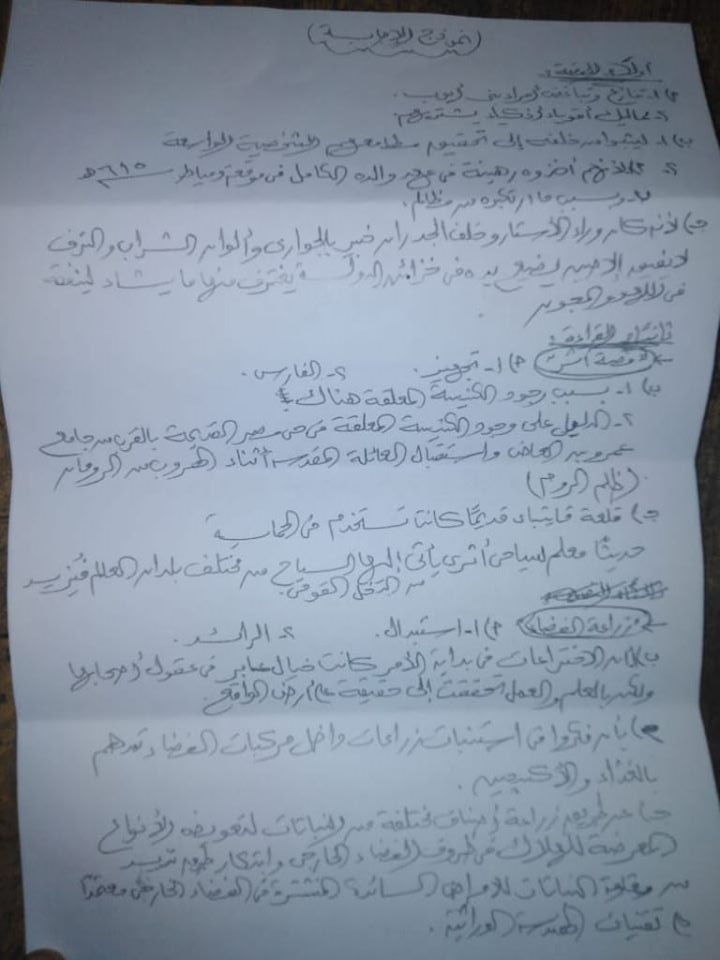 (نموذج الإجابة)
أولًا: القصة:
٢- مماليك أقوياء أذكياء يشتريهم.
ب) ١- ليثبوا من خلفه إلى تحقيق مطامعهم الشخصية الواسعة
٢- لأنهم أخذوه رهينة في عهد والده الكامل في موقعة دمياط ٦١٥هـ
وبسبب ما ارتكبوه من مظالم.
جـ) لأنه كان وراء الأستار وخلف الجدران خبير بالجواري وألوان الشراب والترف
لا يفيق إلا حين يضع يده في خزائن الدولة يغترف منها ما يشاء لينفقه
في اللهو والمجون
ثانيًا: القراءة:
١- تجهيز. ٢- الفارس.
ب) ١- بسبب وجود الكنيسة المعلقة هناك
٢- الدليل على وجود الكنيسة المعلقة في حي مصر القديمة بالقرب من جامع
عمرو بن العاص واستقبال العائلة المقدسة أثناء الهروب من الرومان
(ظلم الروم)
جـ) قلعة قايتباى قديمًا كانت تستخدم في الحماية
حديثًا معلم سياحي أثرى يأتي إليها السياح من مختلف بلدان العالم فيزيد
من الدخل القومي.
زراعة الفضاء أ) ١- استبدال. ٢- الرائد.
ب) لأن الاختراعات في بداية الأمر كانت خيال عابر في عقول أصحابها
ولكن بالعلم والعمل تحققت إلى حقيقة على أرض الواقع.
بأن فكروا في استنبات زراعات داخل مركبات الفضاء تمدهم
بالغذاء والأكسجين.
جـ) عن طريق زراعة أصناف مختلفة من النباتات لتعويض الأنواع
المعرضة للهلاك في ظروف الفضاء الخارجي وابتكار طرق تزيد
من مقاومة النباتات للأمراض السائدة المنتشرة في الفضاء الخارجي معتمدًا
تقنيات الهندسة الوراثية.